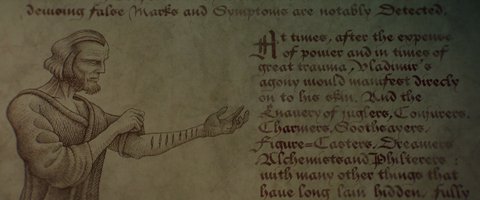 devising false Marks and Symptoms are notably Detected.
At times, after the expense
of power and in times of
great trauma, Vladimir's
agony would manifest direcly
on to his skin. And the
Knavery of juglers, Conjurers,
Charmers, Soothsayers,
Figure=Casters, Dreamers
Alchemists and Philterers :
with many other things that
have long lain hidden, fully